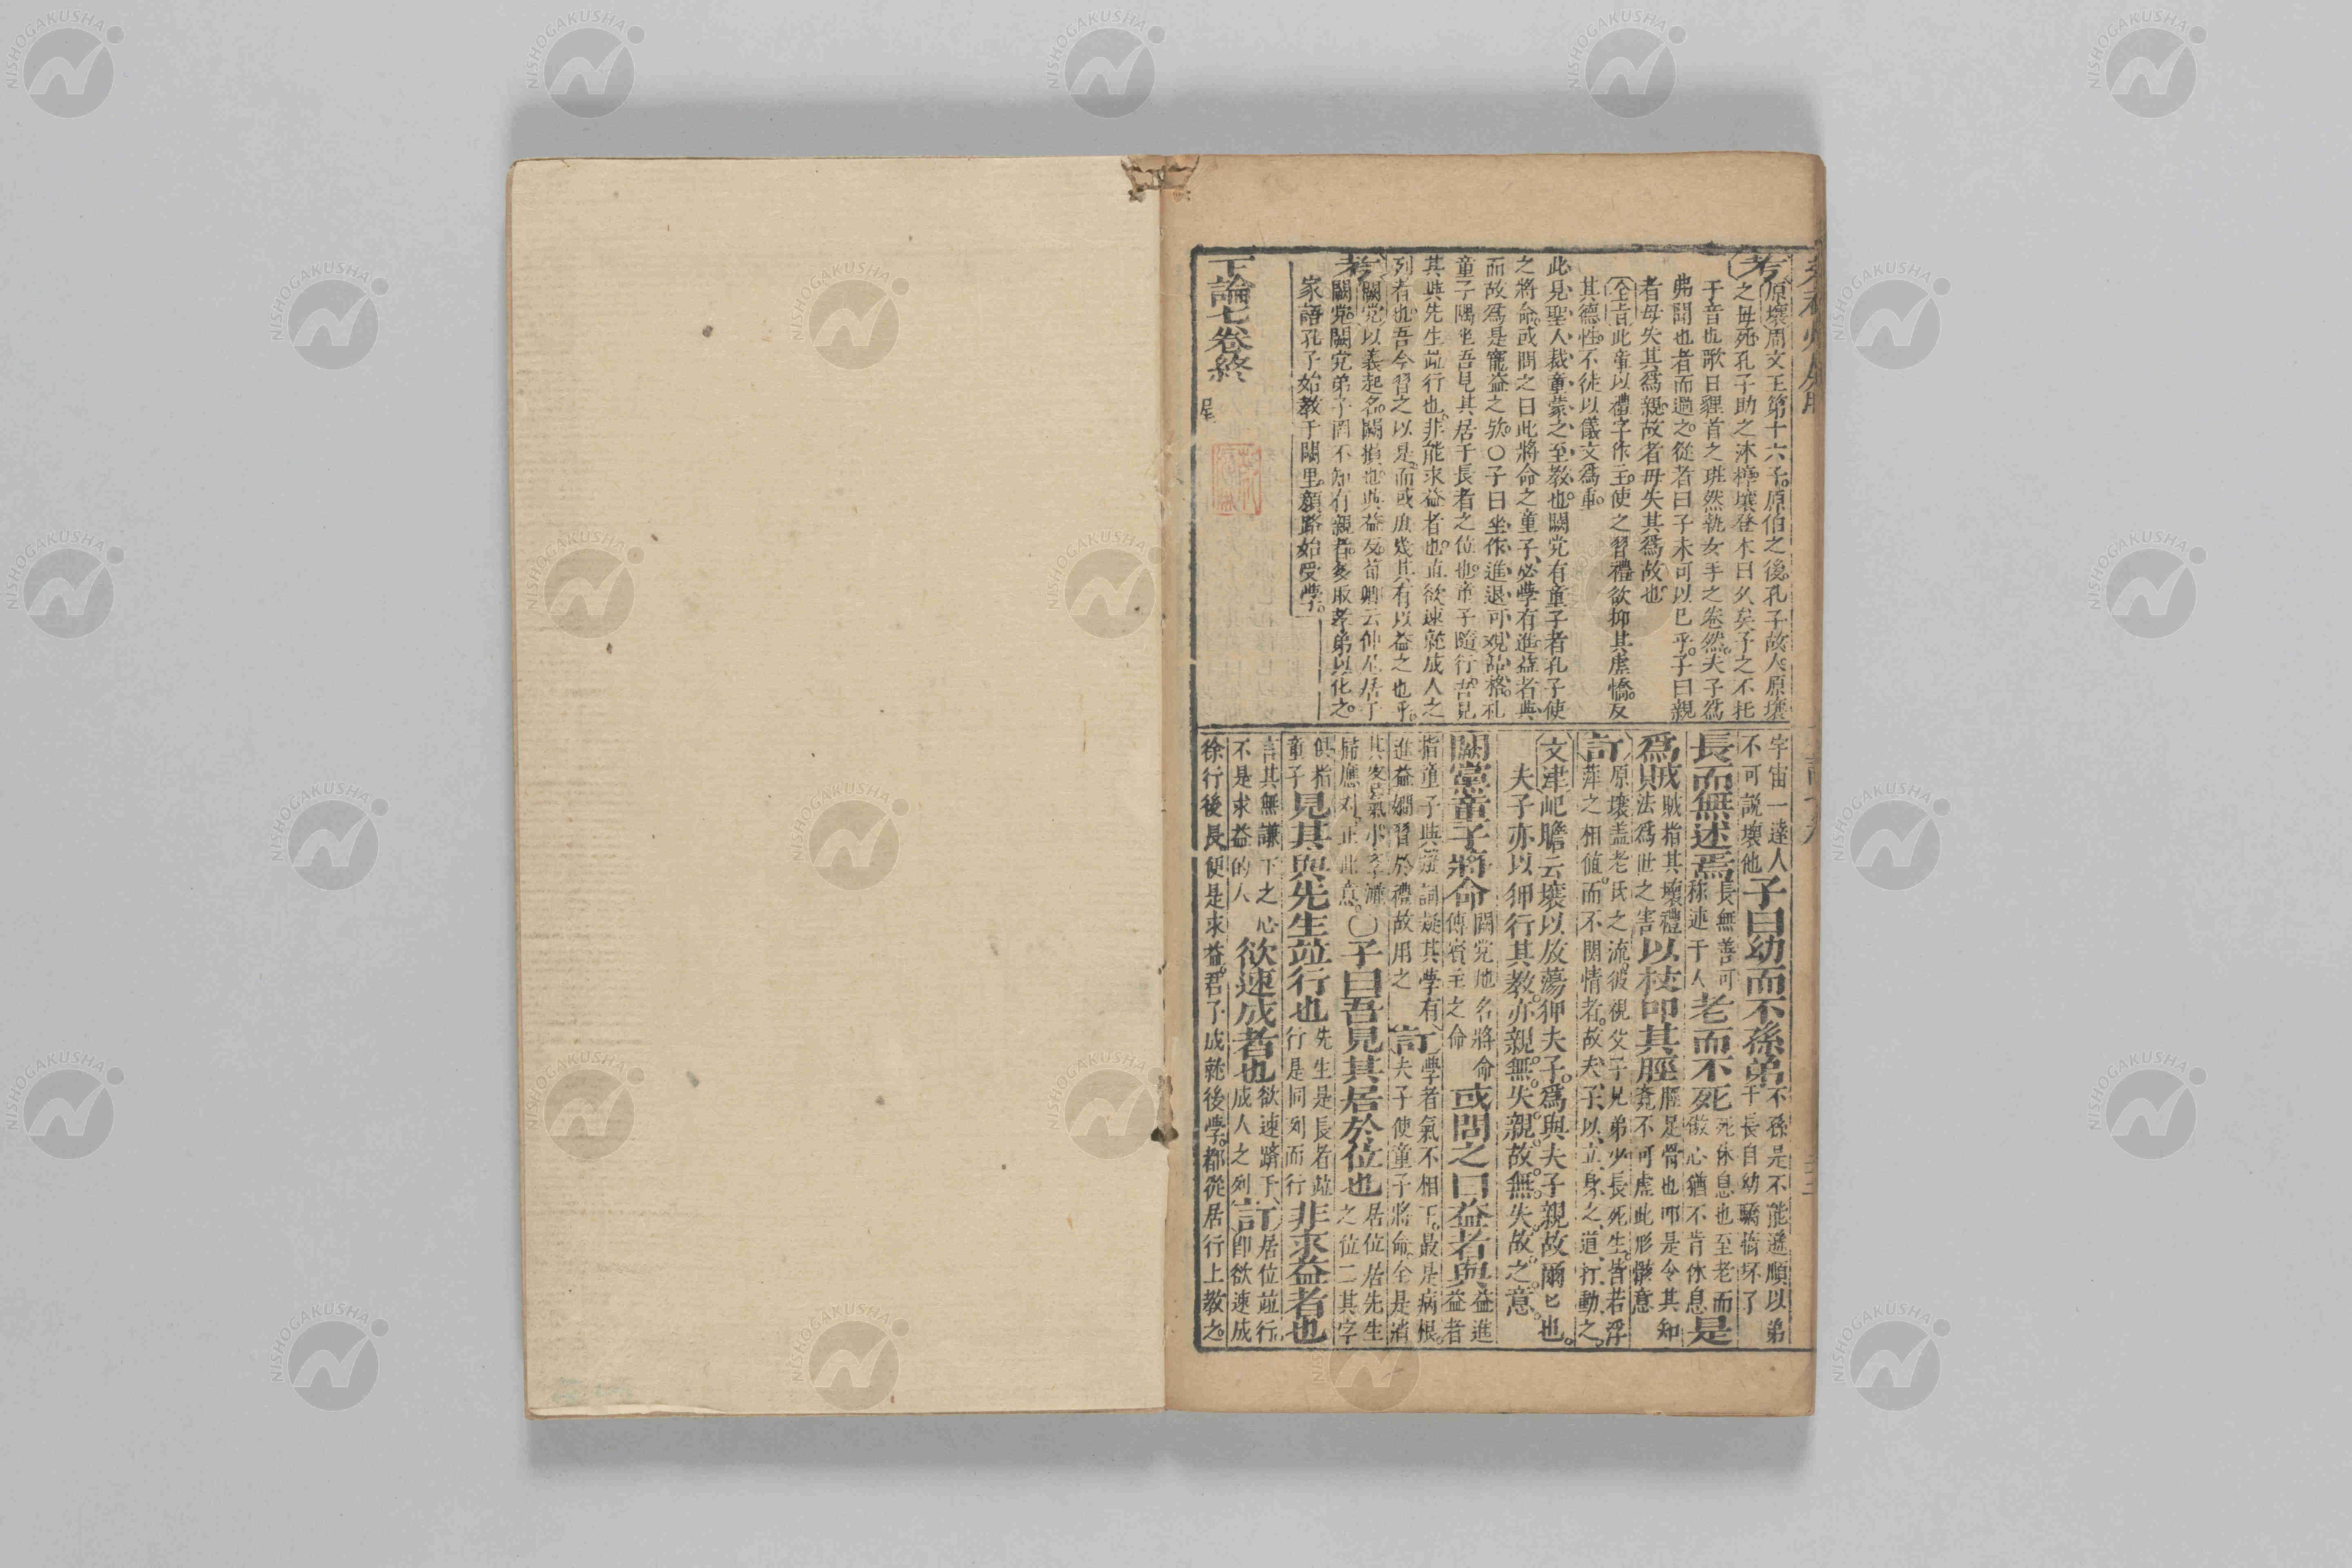 考 原壤周文王第十六子原伯之後孔子故人原壤
之母死孔子助之沐椁壤登木曰久矣予之不托
于音也歌曰貍首之班然執女手之卷然夫子為
弗聞也者而過之從者曰子未可以已乎子曰親
者毋失其為親故者毋失其為故也
全旨此章以禮字作主使之習禮欲抑其虛憍反
其德性不徒以儀文為重
此見聖人裁童蒙之至教也闕党有童子者孔子使
之將命或問之曰此將命之童子必學有進益者與
而故為是寵益之欤○子曰坐作進退可观品格孔
童子隅坐吾見其居于長者之位也童子隨行吾見
其與先生並行也非能求益者也直欲速就成人之
列者也吾今習之以是而或庶幾其有以益之也乎
考 闕党以義起名闕損也與益反荀卿云仲尼居于
闕党闕党弟子罔不知有親者多取孝弟以化之
家語孔子始教于闕里顏路始受學
下論七卷終
宇宙一達人
不可說壞他
子曰幼而不孫弟
不孫是不能遜順以弟
于長自幼驕惰坏了
長而無述焉
長無善可
称述于人
老而不死
死休息也至老而
傲心猶不肯休息
是
為賊
賊指其壞禮
則法為世之害
以杖叩其脛
脛足骨也叩是令其知
竟不可虛此形骸意
訂 原壤盖老氏之流彼視父子兄弟少長死生皆若浮
萍之相值而不関情者故夫子以立身之道打動之
文津屺瞻云壤以放蕩狎夫子為與夫子親故爾已也
夫子亦以狎行其教亦親無失親故無失故之意
闕黨童子將命
闕党地名將命
傳賓主之命
或問之曰益者與
益進
益者
指童子與疑詞疑其學有
進益嫻習於禮故用之
訂 學者氣不相下最是病根
夫子使童子將命全是消
其客氣
○子曰吾見其居於位也
居位居先生
之位二其字
俱指
童子
見其與先生並行也
先生是長者並
行是同列而行
非求益者也
言其無謙下之心
不是求益的人
欲速成者也
欲速躋于
成人之列
訂 居位並行
卽欲速成
徐行後長便是求益君子成就後學都從居行上教之